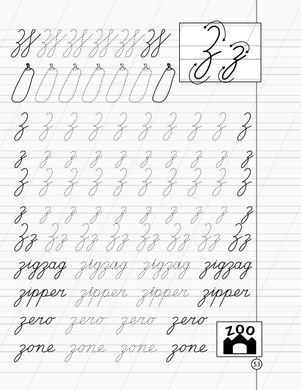 Zz Zz Zz Zz Zz Zz Zz Zz
Z Z Z Z Z Z Z Z Z
z z z z z z z z z
Z Z Z Z Z Z Z Z Z
z z z z z z z z z
Zz Zz Zz Zz Zz Zz Zz Zz
zigzag zigzag zigzag zigzag
zipper zipper zipper zipper
zero zero zero zero
zone zone zone zone
ZOO
53